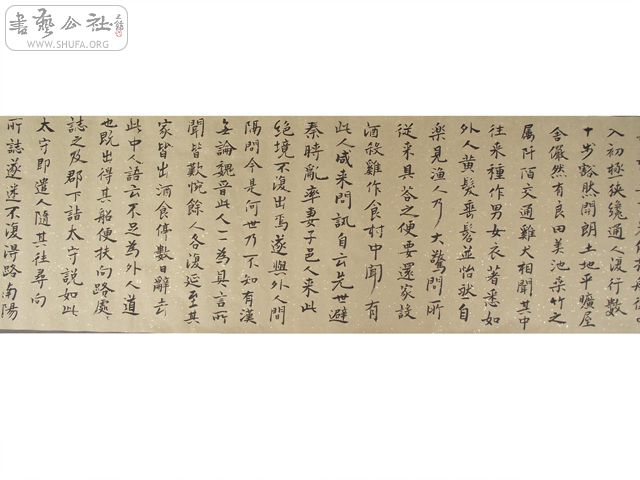 書藝公社
WWW.SHUFA.ORG
入初極狹纔通人復行數
十步豁然開朗土地平曠屋
舍儼然有良田美池桑竹之
属阡陌交通雞犬相聞其中
往来種作男女衣著悉如
外人黄髮垂髫並怡然自
樂見漁人乃大驚問所
從来具答之便要還家設
酒殺雞作食村中聞有
此人咸来問訊自云先世避
秦時亂率妻子邑人来此
絶境不復出焉遂與外人間
隔問今是何世乃不知有漢
無論魏晉此人一一為具言所
聞皆歎惋餘人各復延至其
家皆出酒食停數日辭去
此中人語云不足為外人道
也既出得其船便扶向路處
誌之及郡下詣太守説如此
太守即遣人隨其往尋向
所誌遂迷不復得路南陽